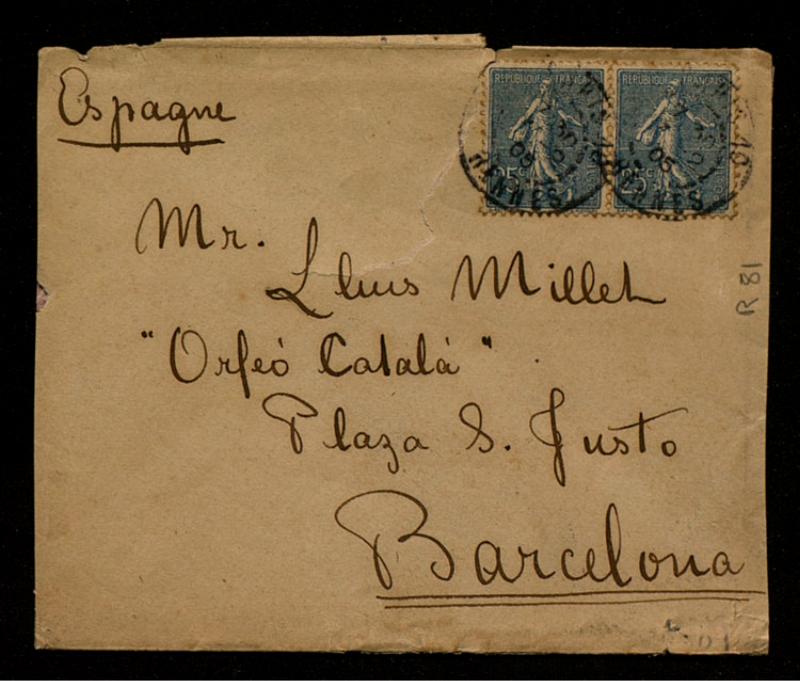 Espagne
REPUBLIQUE FRANÇAISE REPUBLIQUE FRANÇAISE
25c 25c
Mr.
Lluis Millet
"Orfeó Catalá"
Plaza S. Justo
Barcelona
R 81